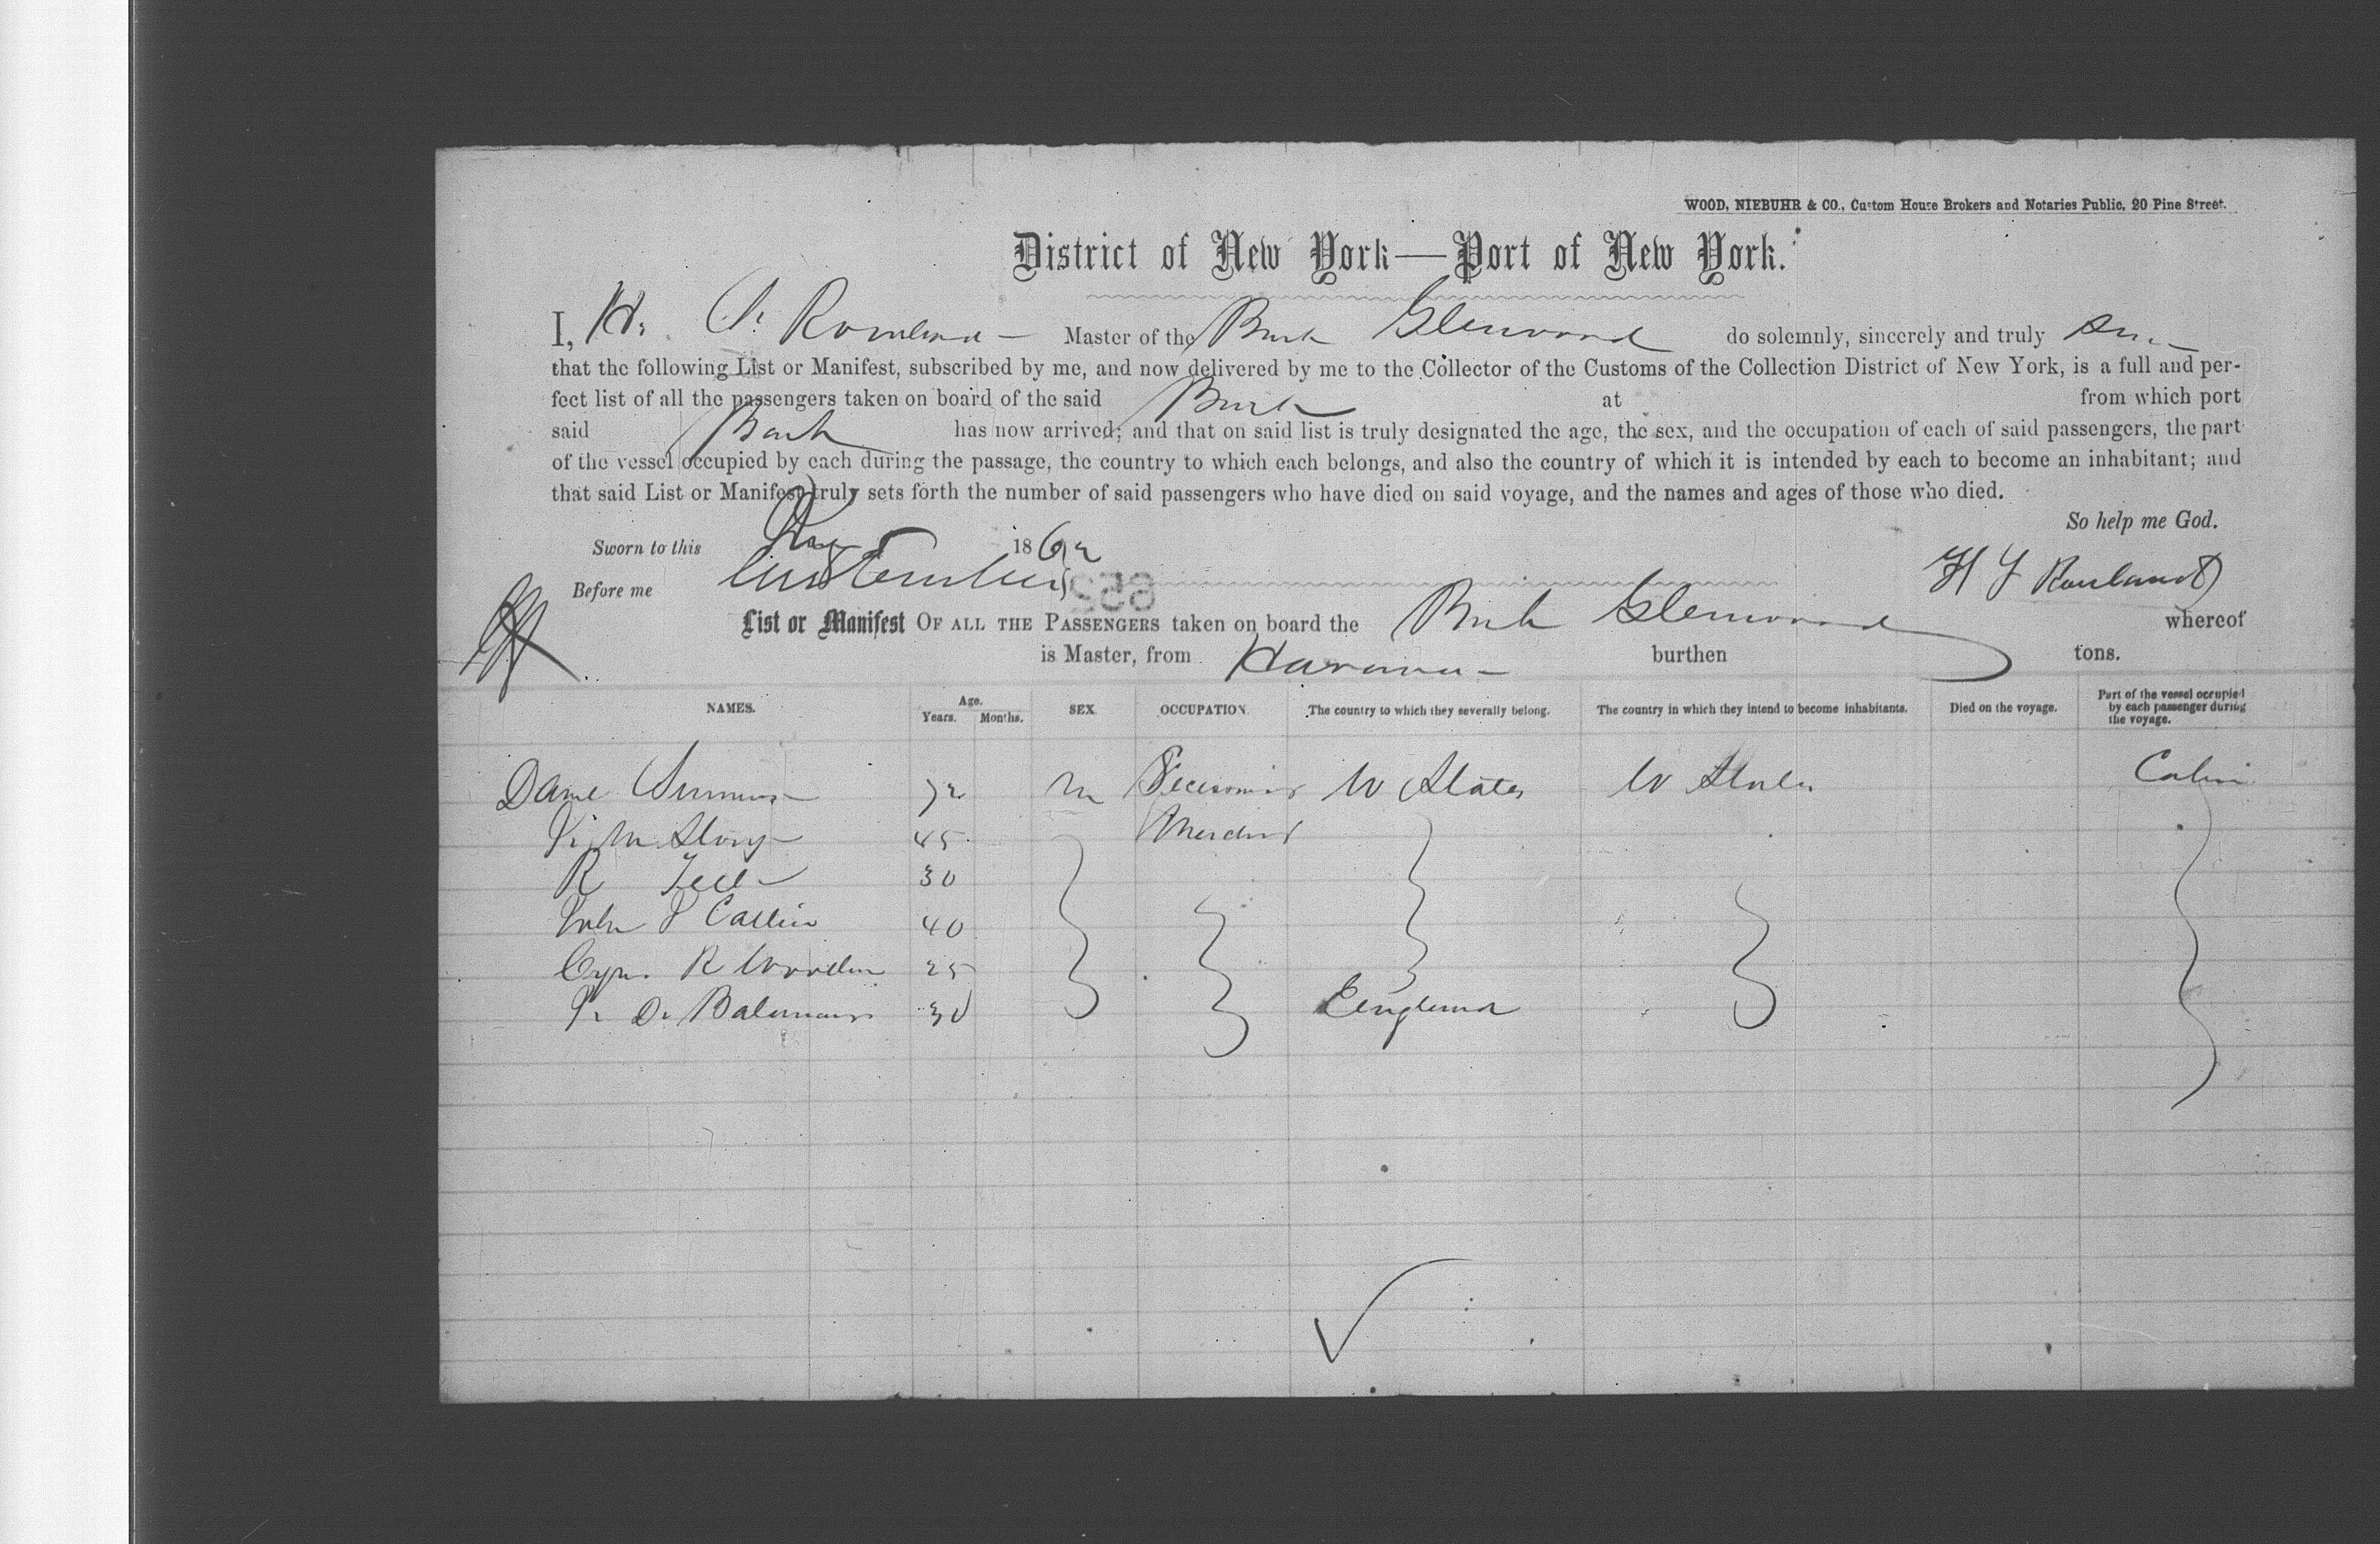 WOOD, NIEBUHR & CO., Custom House Brokers and Notaries Public, 20 Pine Street.
District of New York—Port of New York.
I, H. Rowland Master of the Bark Glenwood do solemnly, sincerely and truly
that the following List or Manifest, subscribed by me, and now delivered by me to the Collector of the Customs of the Collection District of New York, is a full and per-
fect list of all the passengers taken on board of the said Bark at from which port
said Bark has now arrived; and that on said list is truly designated the age, the sex, and the occupation of each of said passengers, the part
of the vessel occupied by each during the passage, the country to which each belongs, and also the country of which it is intended by each to become an inhabitant; and
that said List or Manifest truly sets forth the number of said passengers who have died on said voyage, and the names and ages of those who died.
So help me God.
Sworn to this 1862
Before me H Rowland
652
List or Manifest OF ALL THE PASSENGERS taken on board the Bark Glenwood whereof
is Master, from Havana burthen tons.
NAMES. Age. Years. Months. SEX. OCCUPATION. The country to which they severally belong. The country in which they intend to become inhabitants. Died on the voyage. Part of the vessel occupied by each passenger during the voyage.
72 m U States U States Cabin
Story 45 Merchant
R 30
John 40
R 25
D. 30 England